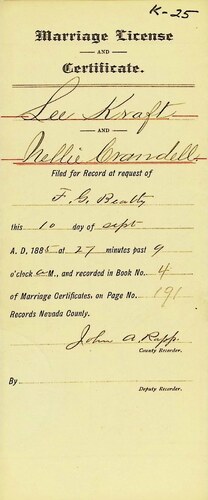 K-25
Marriage License
AND
Certificate.
Lee Kraft
AND
Nellie Crandell
Filed for Record at request of
F. G. Beatty
this 10 day of Sept
A. D. 1885 at 27 minutes past 9
o'clock A M., and recorded in Book No. 4
of Marriage Certificates, on Page No. 191
Records Nevada County.
John A. Rapp.
County Recorder.
By
Deputy Recorder.